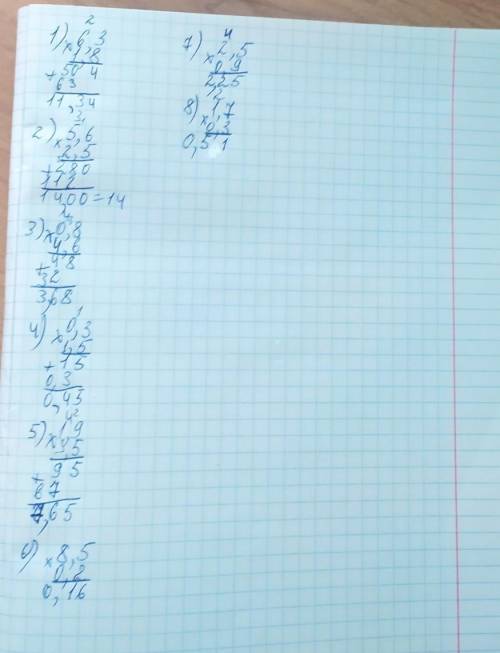 2
1) × 6,3
1,8
+ 50 4
63
11,34
3
2) × 5,6
2,5
+ 280
112
14,00 = 14
3) × 0,8
4,6
+ 48
32
3,68
1
4) × 0,3
1,5
+ 15
0,3
0,45
5) × 1,9
+ 95
7,65
6) × 8,5
0,2
0,16
4
7) × 2,5
0,9
2,25
2
8) × 1,7
0,3
0,51